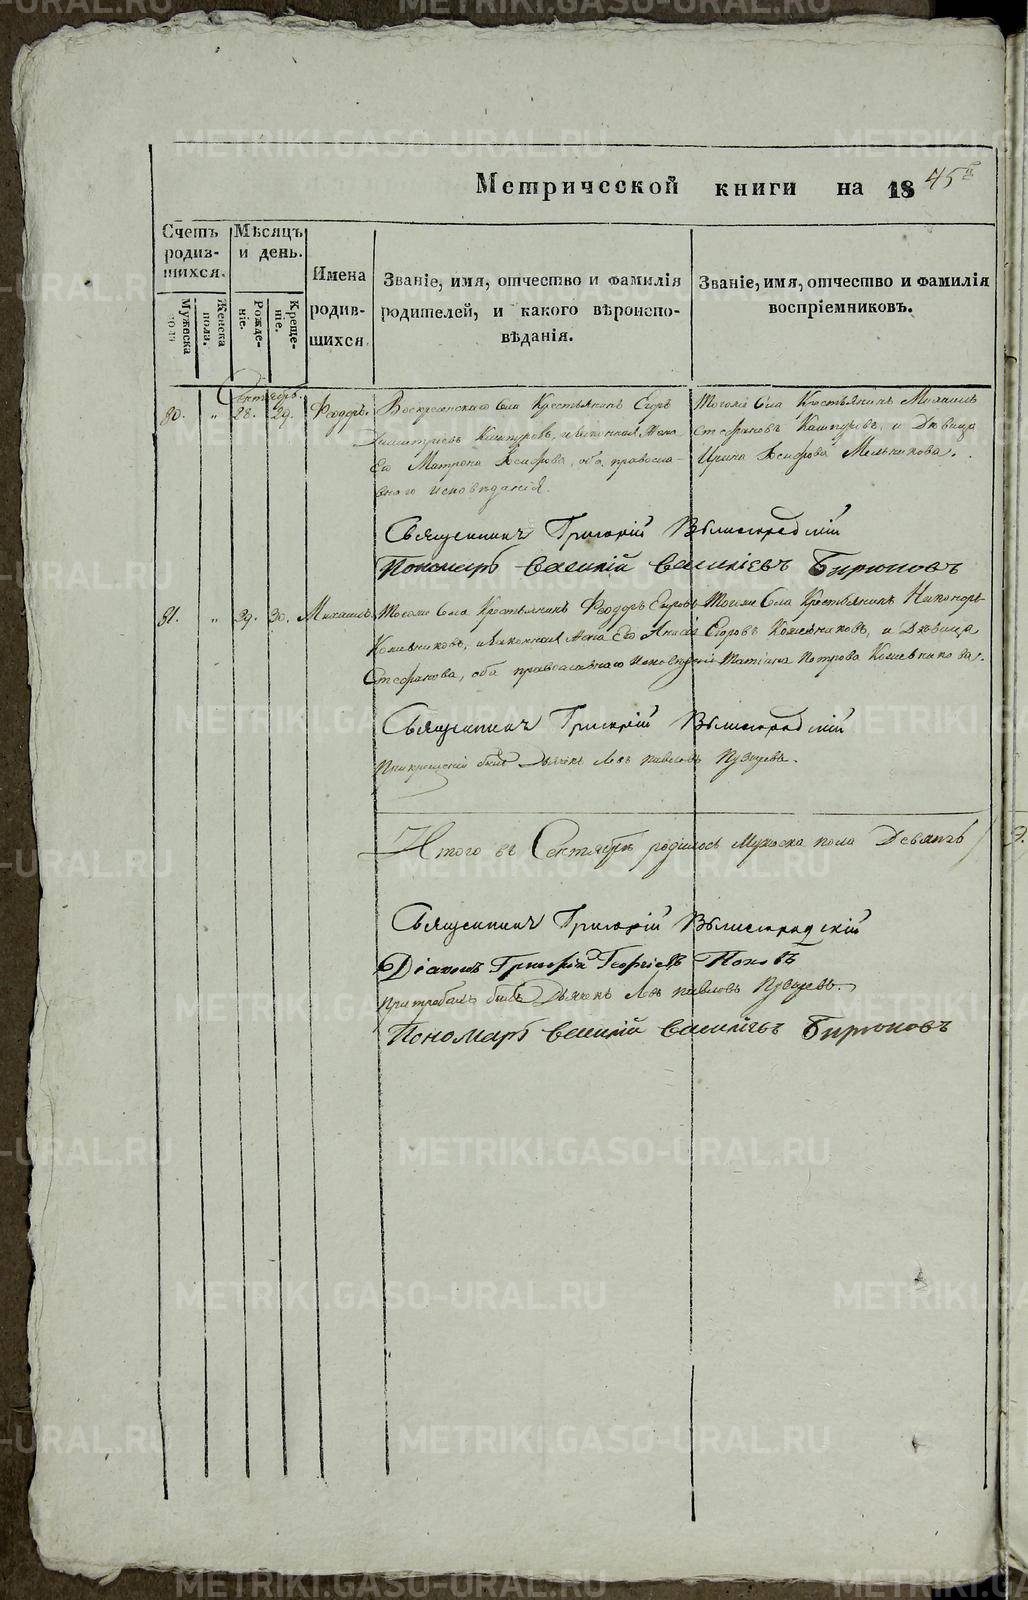 Метрической книги на 1845й
Счетъ родив-шихся.
Мужеска пола
Женска пола.
Мѣсяцъ и день.
Рожде-ніе.
Креще-ніе.
Имена родив-шихся
Званіе, имя, отчество и фамилія
родителей, и какого вѣроиспо-
вѣданія.
Званіе, имя, отчество и фамилія
воспріемниковъ.
Сентябрь.
80. „ 28. 29. Феодоръ. Воскресенскаго Села Крестьянинъ Егоръ
Димитріевъ, изаконная Жена
Его Матрона Осифова, оба правосла-
внаго исповѣданія.
Тогоже Села Крестьянинъ Михаилъ
Стефановъ, и Дѣвица
Ирина Осифова Мельникова.
Священникъ Григорій Вышегородскій
Пономарь Василій Васильевъ Бирюковъ
81. „ 29. 30. Михаилъ. Тогоже Села Крестьянинъ Феодоръ Егоровъ
Кожевниковъ, изаконная Жена Его Анисія
Стефанова, оба православнаго исповѣданія
Тогоже Села Крестьянинъ Никоноръ
Егоровъ Кожевниковъ, и Дѣвица
Татіана Петрова Кожевникова.
Священникъ Григорій Вышегородскій
При крещеніи былъ Дьячекъ Левъ Павловъ
Итого въ Сентябрѣ родилось Мужеска пола Девять / 9.
Священникъ Григорій Вышегородскій
Діаконъ Григорій Георгіевъ Поповъ
При требахъ былъ Дьячекъ Левъ Павловъ
Пономарь Василій Васильевъ Бирюковъ
METRIKI.GASO-URAL.RU